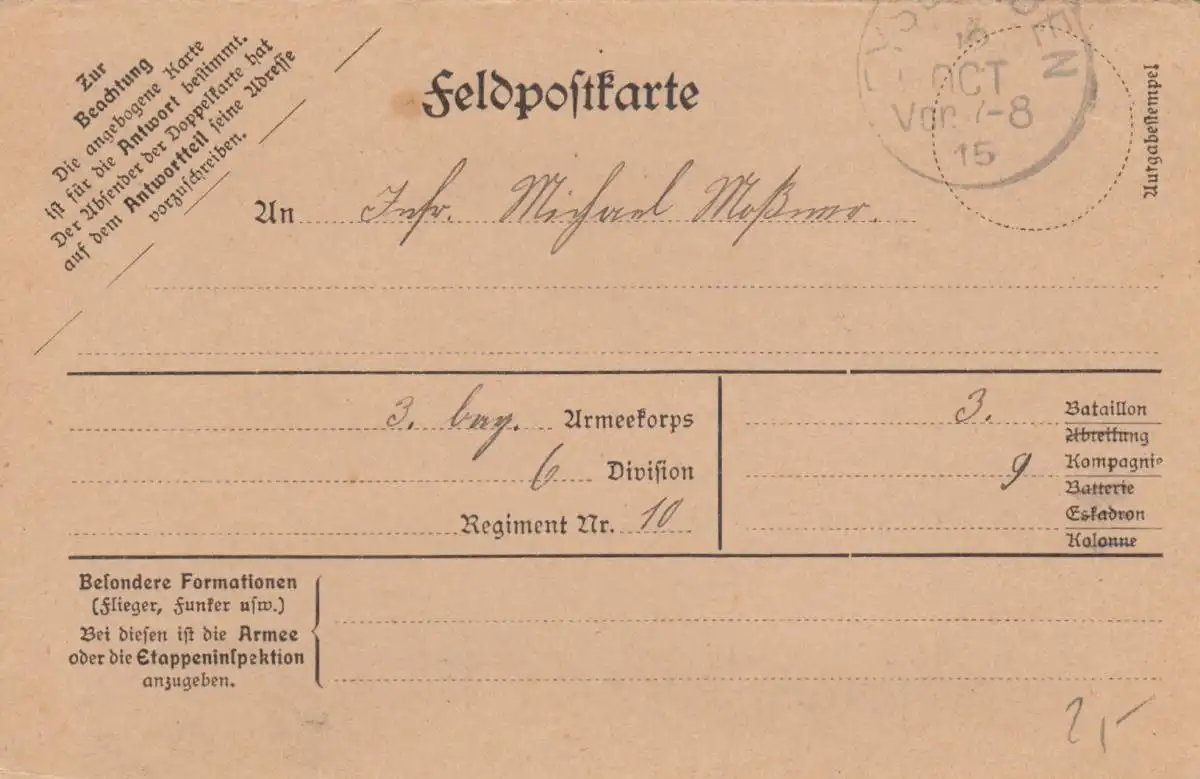 Zur
Beachtung
Die angebogene Karte
ist für die Antwort bestimmt.
Der Absender der Doppelkarte hat
auf dem Antwortteil seine Adresse
vorzuschreiben.
Feldpostkarte
OCT
Vor. 7-8
15
Aufgabestempel
An Infr. Michael
3. bay. Armeekorps
6 Division
Regiment Nr. 10
3. Bataillon
Abteilung
9 Kompagnie
Batterie
Eskadron
Kolonne
Besondere Formationen
(Flieger, Funker usw.)
Bei diesen ist die Armee
oder die Etappeninspektion
anzugeben.
2,-